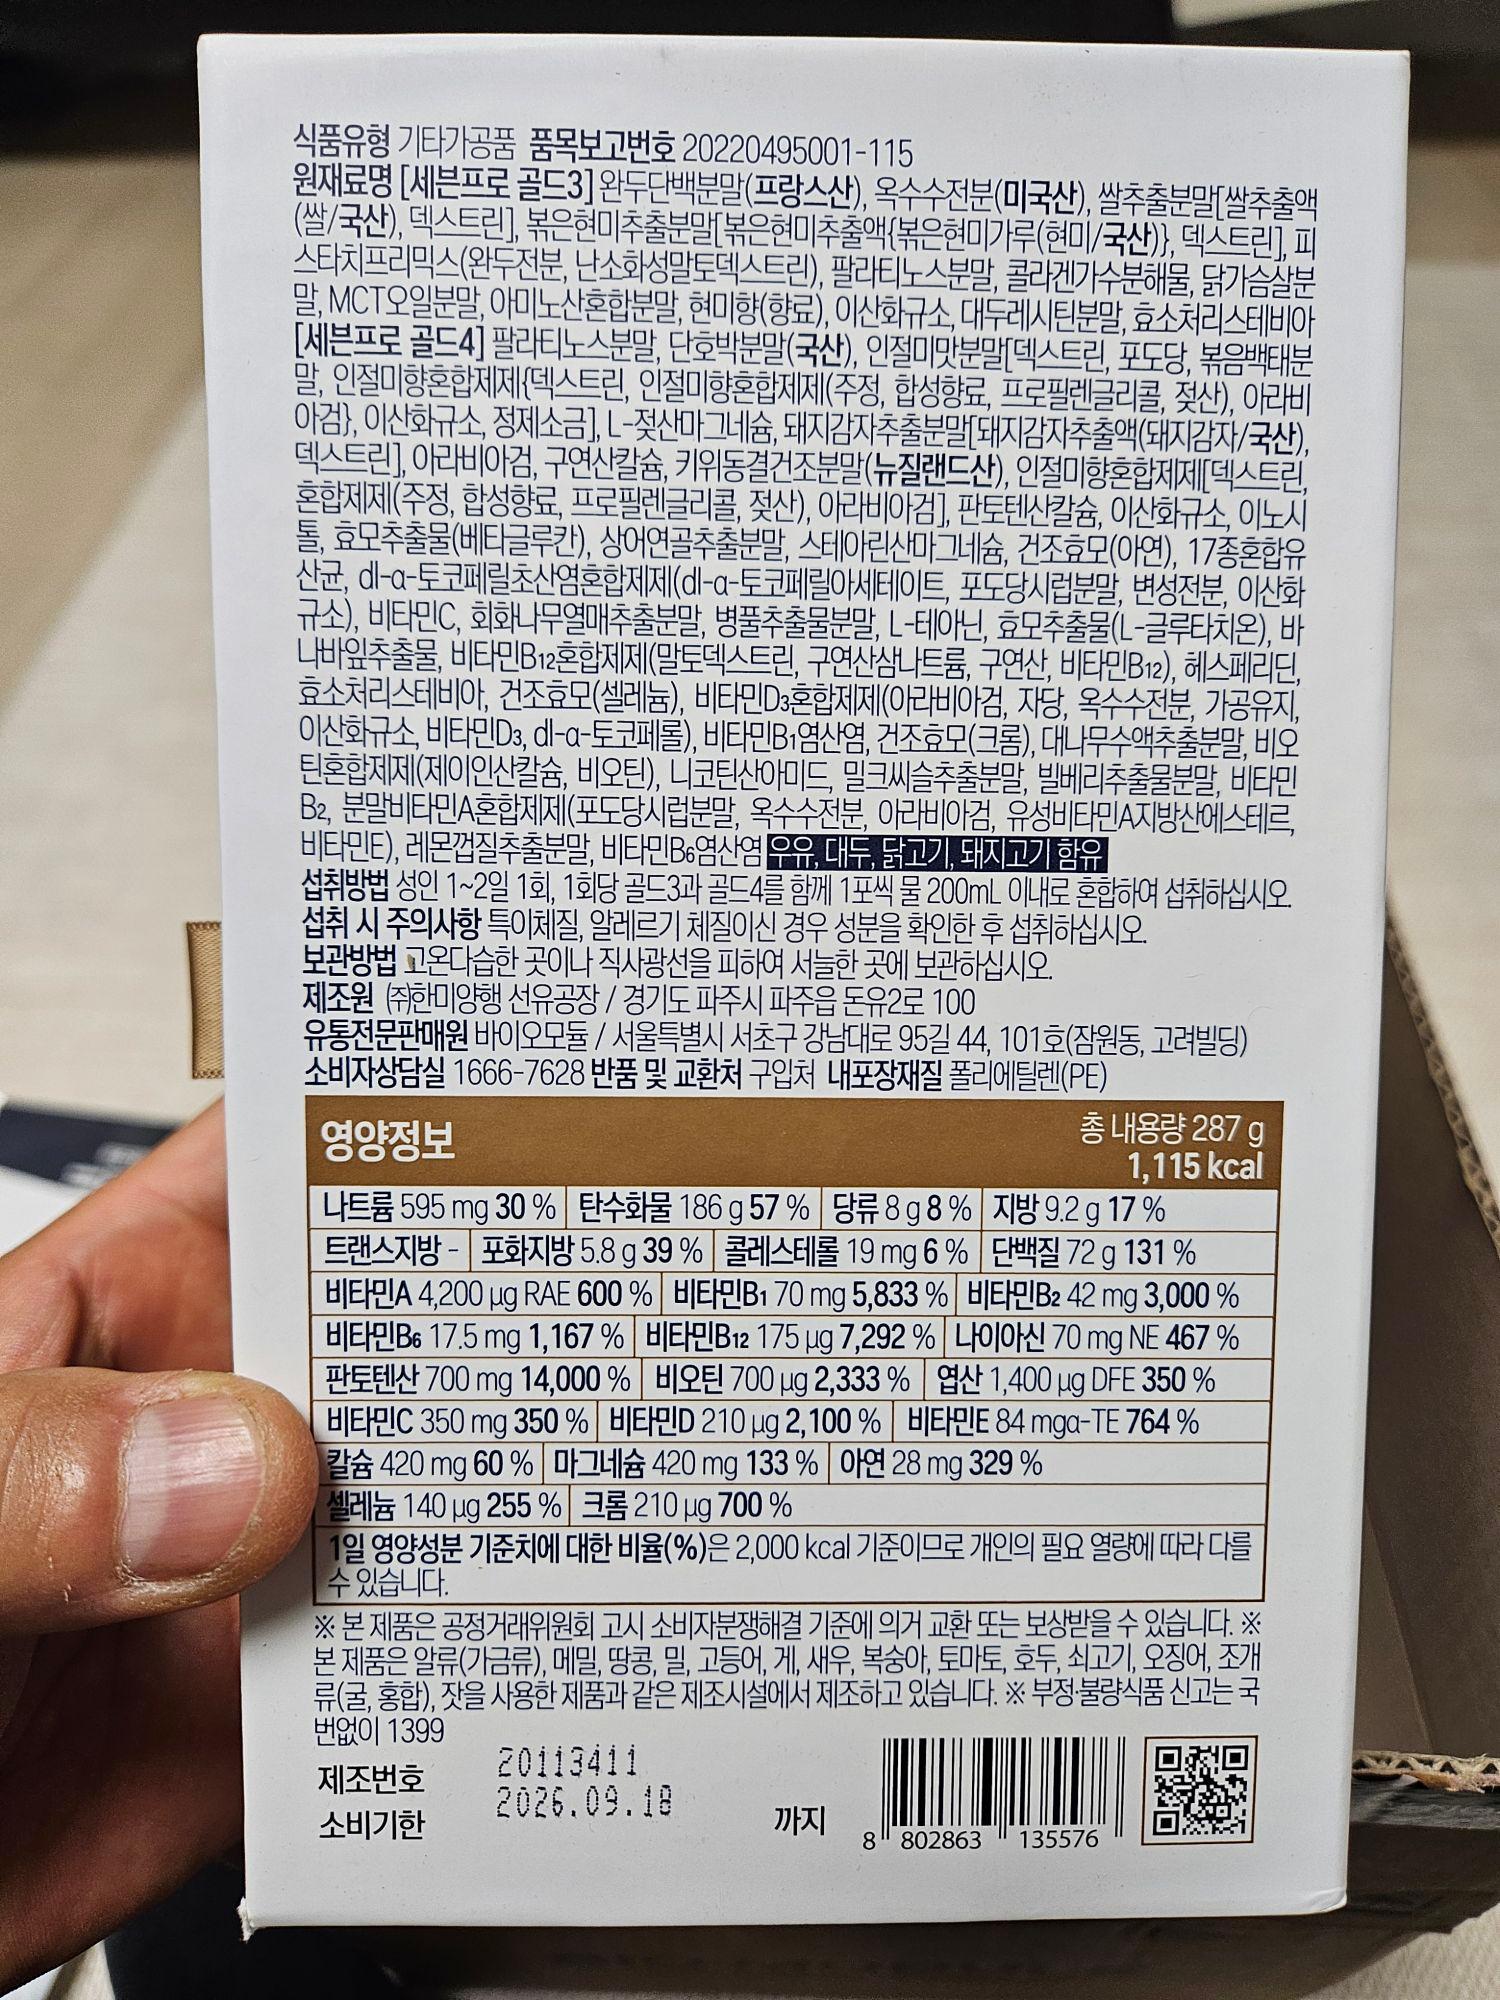 식품유형 기타가공품 품목보고번호 20220495001-115
원재료명 [세븐프로 골드3] 완두단백분말(프랑스산), 옥수수전분(미국산), 쌀추출분말[쌀추출액
(쌀/국산), 덱스트린], 볶은현미추출분말[볶은현미추출액{볶은현미가루(현미/국산)}, 덱스트린], 피
스타치프리믹스(완두전분, 난소화성말토덱스트린), 팔라티노스분말, 콜라겐가수분해물, 닭가슴살분
말, MCT오일분말, 아미노산혼합분말, 현미향(향료), 이산화규소, 대두레시틴분말, 효소처리스테비아
[세븐프로 골드4] 팔라티노스분말, 단호박분말(국산), 인절미맛분말[덱스트린, 포도당, 볶음백태분
말, 인절미향혼합제제{덱스트린, 인절미향혼합제제(주정, 합성향료, 프로필렌글리콜, 젖산), 아라비
아검}, 이산화규소, 정제소금], L-젖산마그네슘, 돼지감자추출분말[돼지감자추출액(돼지감자/국산),
덱스트린], 아라비아검, 구연산칼슘, 키위동결건조분말(뉴질랜드산), 인절미향혼합제제[덱스트린,
혼합제제(주정, 합성향료, 프로필렌글리콜, 젖산), 아라비아검], 판토텐산칼슘, 이산화규소, 이노시
톨, 효모추출물(베타글루칸), 상어연골추출분말, 스테아린산마그네슘, 건조효모(아연), 17종혼합유
산균, dl-α-토코페릴초산염혼합제제(dl-α-토코페릴아세테이트, 포도당시럽분말, 변성전분, 이산화
규소), 비타민C, 회화나무열매추출분말, 병풀추출물분말, L-테아닌, 효모추출물(L-글루타치온), 바
나바잎추출물, 비타민B12혼합제제(말토덱스트린, 구연산삼나트륨, 구연산, 비타민B12), 헤스페리딘,
효소처리스테비아, 건조효모(셀레늄), 비타민D3혼합제제(아라비아검, 자당, 옥수수전분, 가공유지,
이산화규소, 비타민D3, dl-α-토코페롤), 비타민B1염산염, 건조효모(크롬), 대나무수액추출분말, 비오
틴혼합제제(제이인산칼슘, 비오틴), 니코틴산아미드, 밀크씨슬추출분말, 빌베리추출물분말, 비타민
B2, 분말비타민A혼합제제(포도당시럽분말, 옥수수전분, 아라비아검, 유성비타민A지방산에스테르,
비타민E), 레몬껍질추출분말, 비타민B6염산염 우유, 대두, 닭고기, 돼지고기 함유
섭취방법 성인 1~2일 1회, 1회당 골드3과 골드4를 함께 1포씩 물 200mL 이내로 혼합하여 섭취하십시오.
섭취 시 주의사항 특이체질, 알레르기 체질이신 경우 성분을 확인한 후 섭취하십시오.
보관방법 고온다습한 곳이나 직사광선을 피하여 서늘한 곳에 보관하십시오.
제조원 ㈜한미양행 선유공장 / 경기도 파주시 파주읍 돈유2로 100
유통전문판매원 바이오모듈 / 서울특별시 서초구 강남대로 95길 44, 101호(잠원동, 고려빌딩)
소비자상담실 1666-7628 반품 및 교환처 구입처 내포장재질 폴리에틸렌(PE)
영양정보 총 내용량 287 g
1,115 kcal
나트륨 595 mg 30 % 탄수화물 186 g 57 % 당류 8 g 8 % 지방 9.2 g 17 %
트랜스지방 - 포화지방 5.8 g 39 % 콜레스테롤 19 mg 6 % 단백질 72 g 131 %
비타민A 4,200 μg RAE 600 % 비타민B1 70 mg 5,833 % 비타민B2 42 mg 3,000 %
비타민B6 17.5 mg 1,167 % 비타민B12 175 μg 7,292 % 나이아신 70 mg NE 467 %
판토텐산 700 mg 14,000 % 비오틴 700 μg 2,333 % 엽산 1,400 μg DFE 350 %
비타민C 350 mg 350 % 비타민D 210 μg 2,100 % 비타민E 84 mgα-TE 764 %
칼슘 420 mg 60 % 마그네슘 420 mg 133 % 아연 28 mg 329 %
셀레늄 140 μg 255 % 크롬 210 μg 700 %
1일 영양성분 기준치에 대한 비율(%)은 2,000 kcal 기준이므로 개인의 필요 열량에 따라 다를
수 있습니다.
※ 본 제품은 공정거래위원회 고시 소비자분쟁해결 기준에 의거 교환 또는 보상받을 수 있습니다. ※
본 제품은 알류(가금류), 메밀, 땅콩, 밀, 고등어, 게, 새우, 복숭아, 토마토, 호두, 쇠고기, 오징어, 조개
류(굴, 홍합), 잣을 사용한 제품과 같은 제조시설에서 제조하고 있습니다. ※ 부정·불량식품 신고는 국
번없이 1399
제조번호 20113411
소비기한 2026.09.18 까지
8 802863 135576